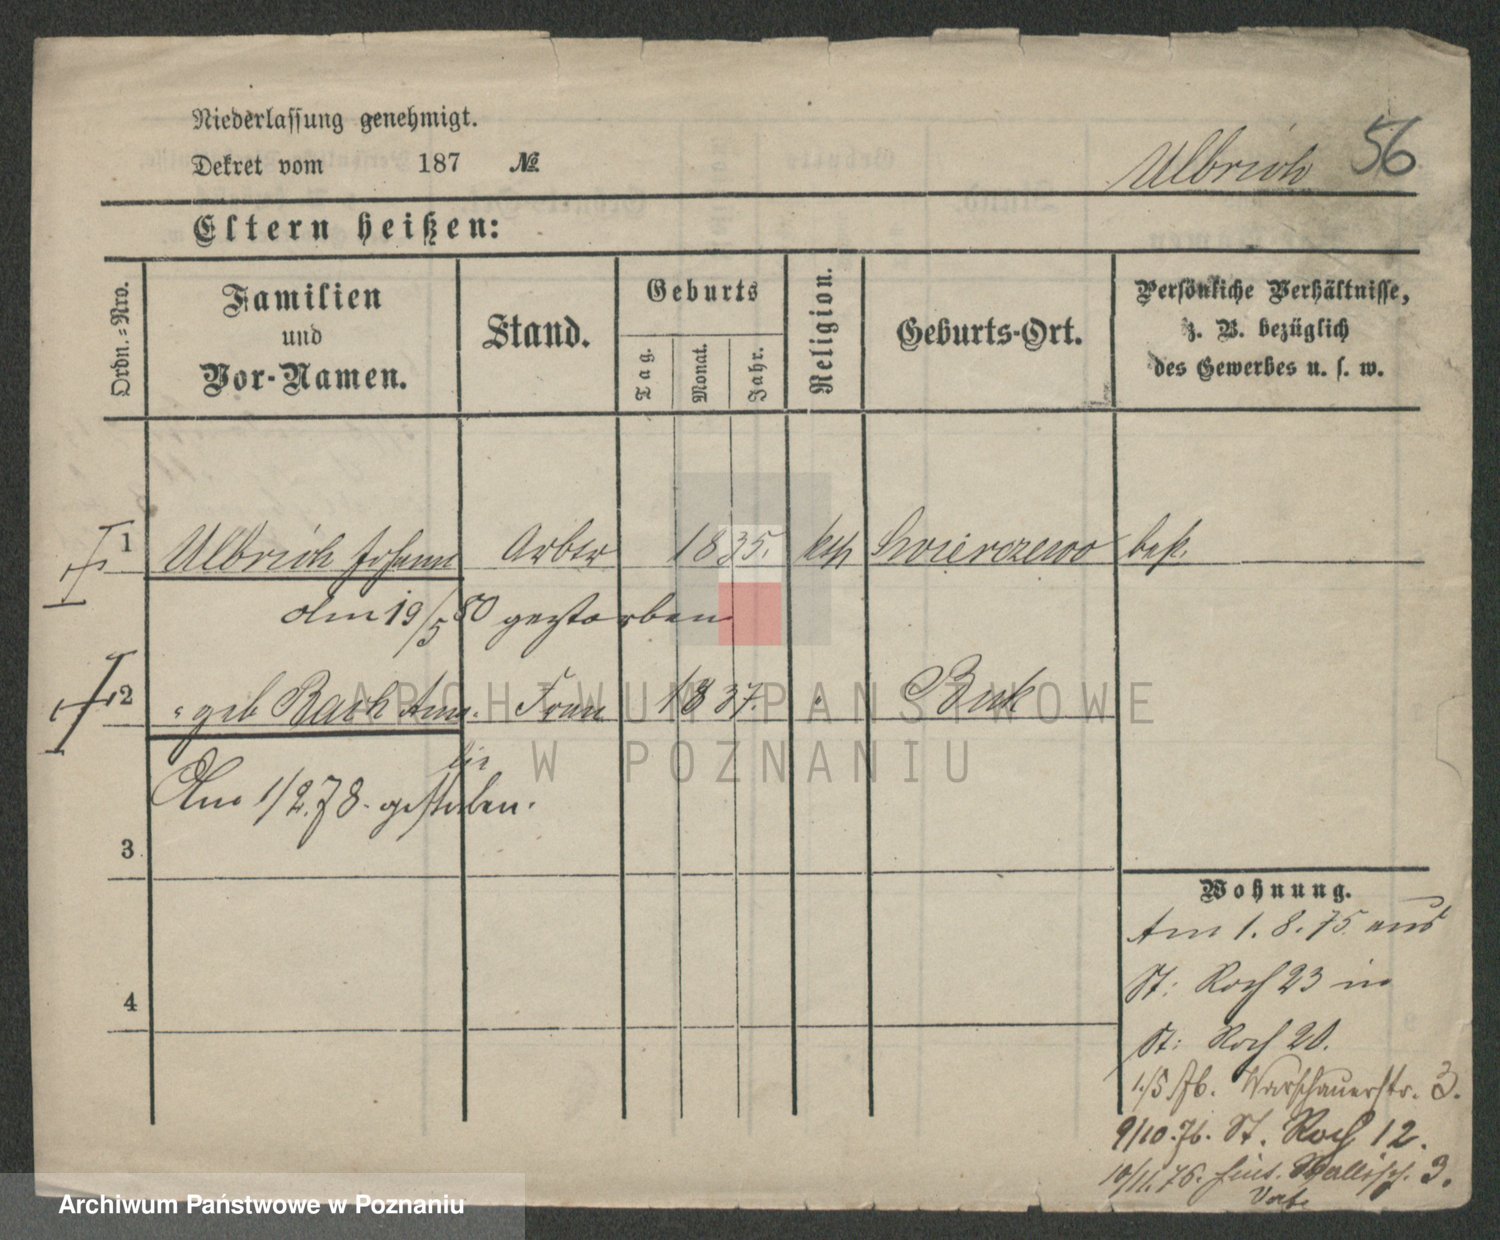 Niederlassung genehmigt.
Dekret vom 187 №
Ulbrich 56
Eltern heißen:
Ordn.-Nro.
Familien
und
Vor-Namen.
Stand.
Geburts
Tag.
Monat.
Jahr.
Religion.
Geburts-Ort.
Persönliche Verhältnisse,
z. B. bezüglich
des Gewerbes u. s. w.
1 Ulbrich Johann Arbtr 1835. kth Swierczewo
Am 19/5 80 gestorben
2 " geb Bach Anna Frau 1837. " Buk
Am 1/2.78. gestorben.
3
4
Wohnung.
Am 1. 8. 75. aus
St: Roch 23 in
St: Roch 20.
1/5 76. Warschauerstr. 3.
9/10.76. St. Roch 12.
10/11.76. Wallisch. 3.
ARCHIWUM PAŃSTWOWE
W POZNANIU
Archiwum Państwowe w Poznaniu